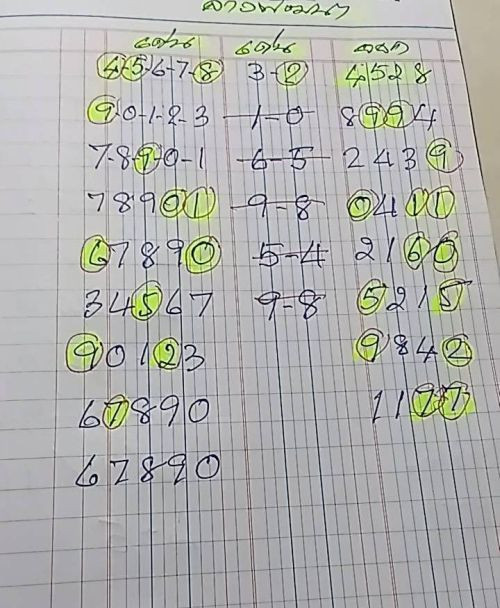 ลาวพัฒนา
เด่น เด่น ออก
4-5-6-7-8 3-2 4528
9-0-1-2-3 1-0 8994
7-8-9-0-1 6-5 2439
78901 9-8 0411
67890 5-4 2160
34567 9-8 5215
90123 9842
67890 1177
67890